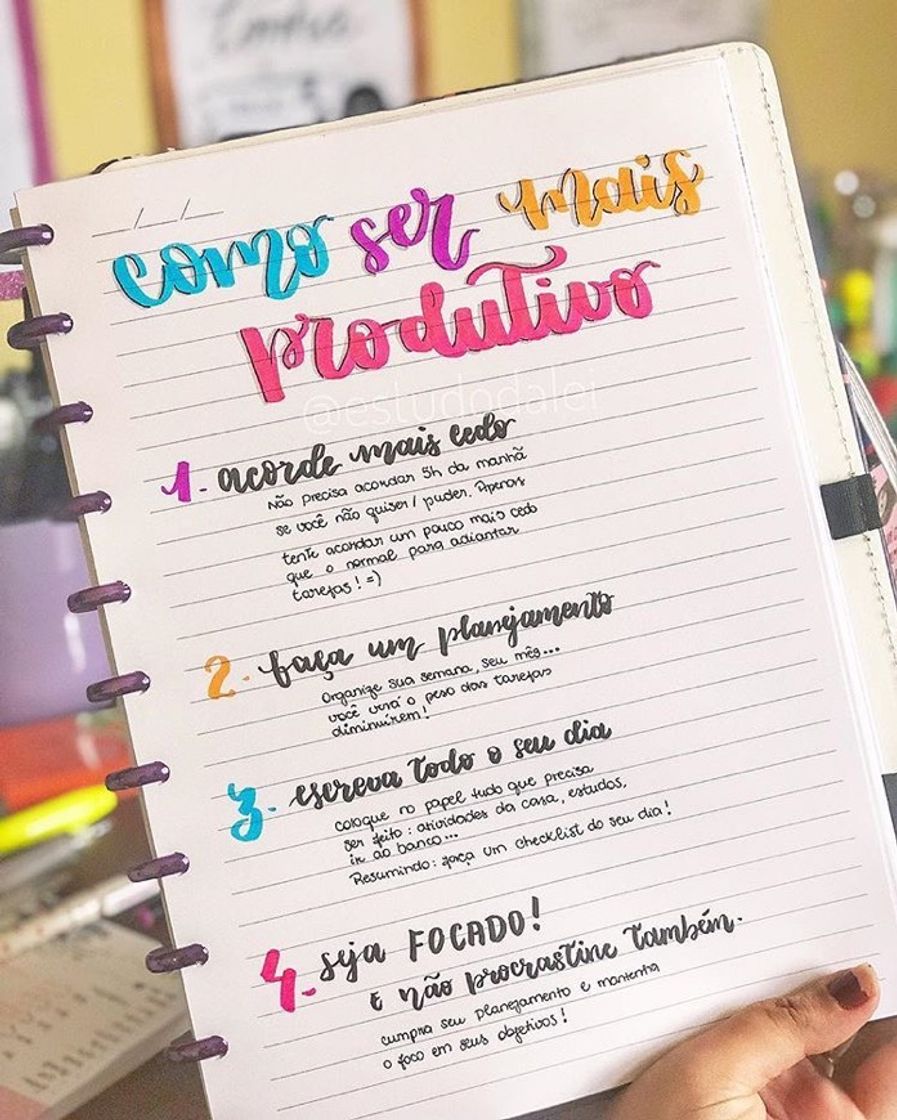 _/_/_
como ser mais
produtivo
@estudodalei
1. acorde mais cedo
Não precisa acordar 5h da manhã
se você não quiser/puder. Apenas
tente acordar um pouco mais cedo
que o normal para adiantar
tarefas! =)
2. faça um planejamento
Organize sua semana, seu mês...
você verá o peso das tarefas
diminuírem!
3. escreva todo o seu dia
coloque no papel tudo que precisa
ser feito: atividades da casa, estudos,
ir ao banco...
Resumindo: faça um checklist do seu dia!
4. seja FOCADO!
E não procrastine também.
cumpra seu planejamento e mantenha
o foco em seus objetivos!